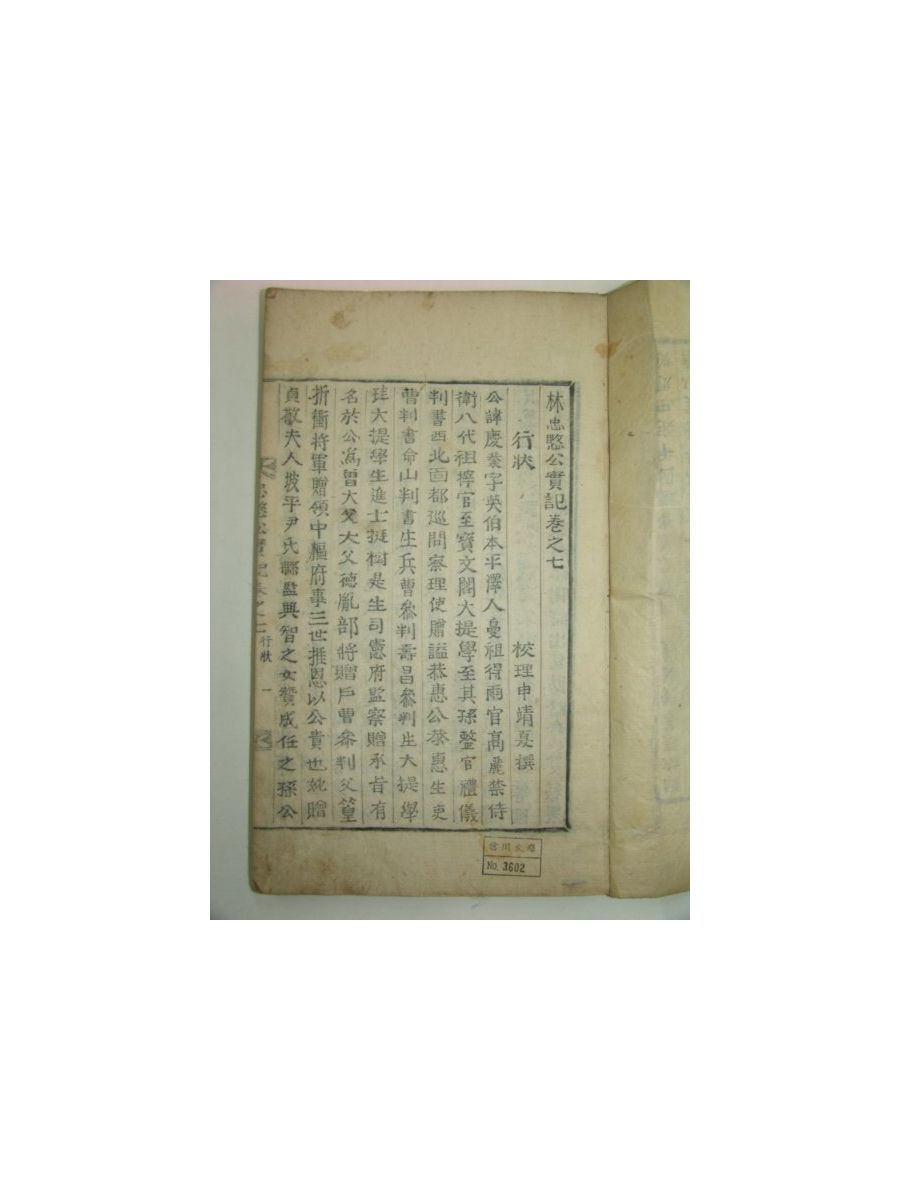 林忠愍公實記卷之七
行狀 校理申靖夏撰
公諱慶業字英伯本平澤人曼祖得雨官高麗禁侍
衛八代祖擰官至寶文閣大提學至其孫整官禮儀
判書西北面都巡問察理使贈謚恭惠公恭惠生吏
曹判書命山判書生兵曹參判壽昌參判生大提學
珪大提學生進士挺樹是生司憲府監察贈承旨有
名於公爲曾大父大父德胤部將贈戶曹參判父篁
折衝將軍贈領中樞府事三世推恩以公貴也妣贈
貞敬夫人坡平尹氏縣監興智之女贊成任之孫公
忠愍公實記卷之七 行狀 一
文庫
No. 3602